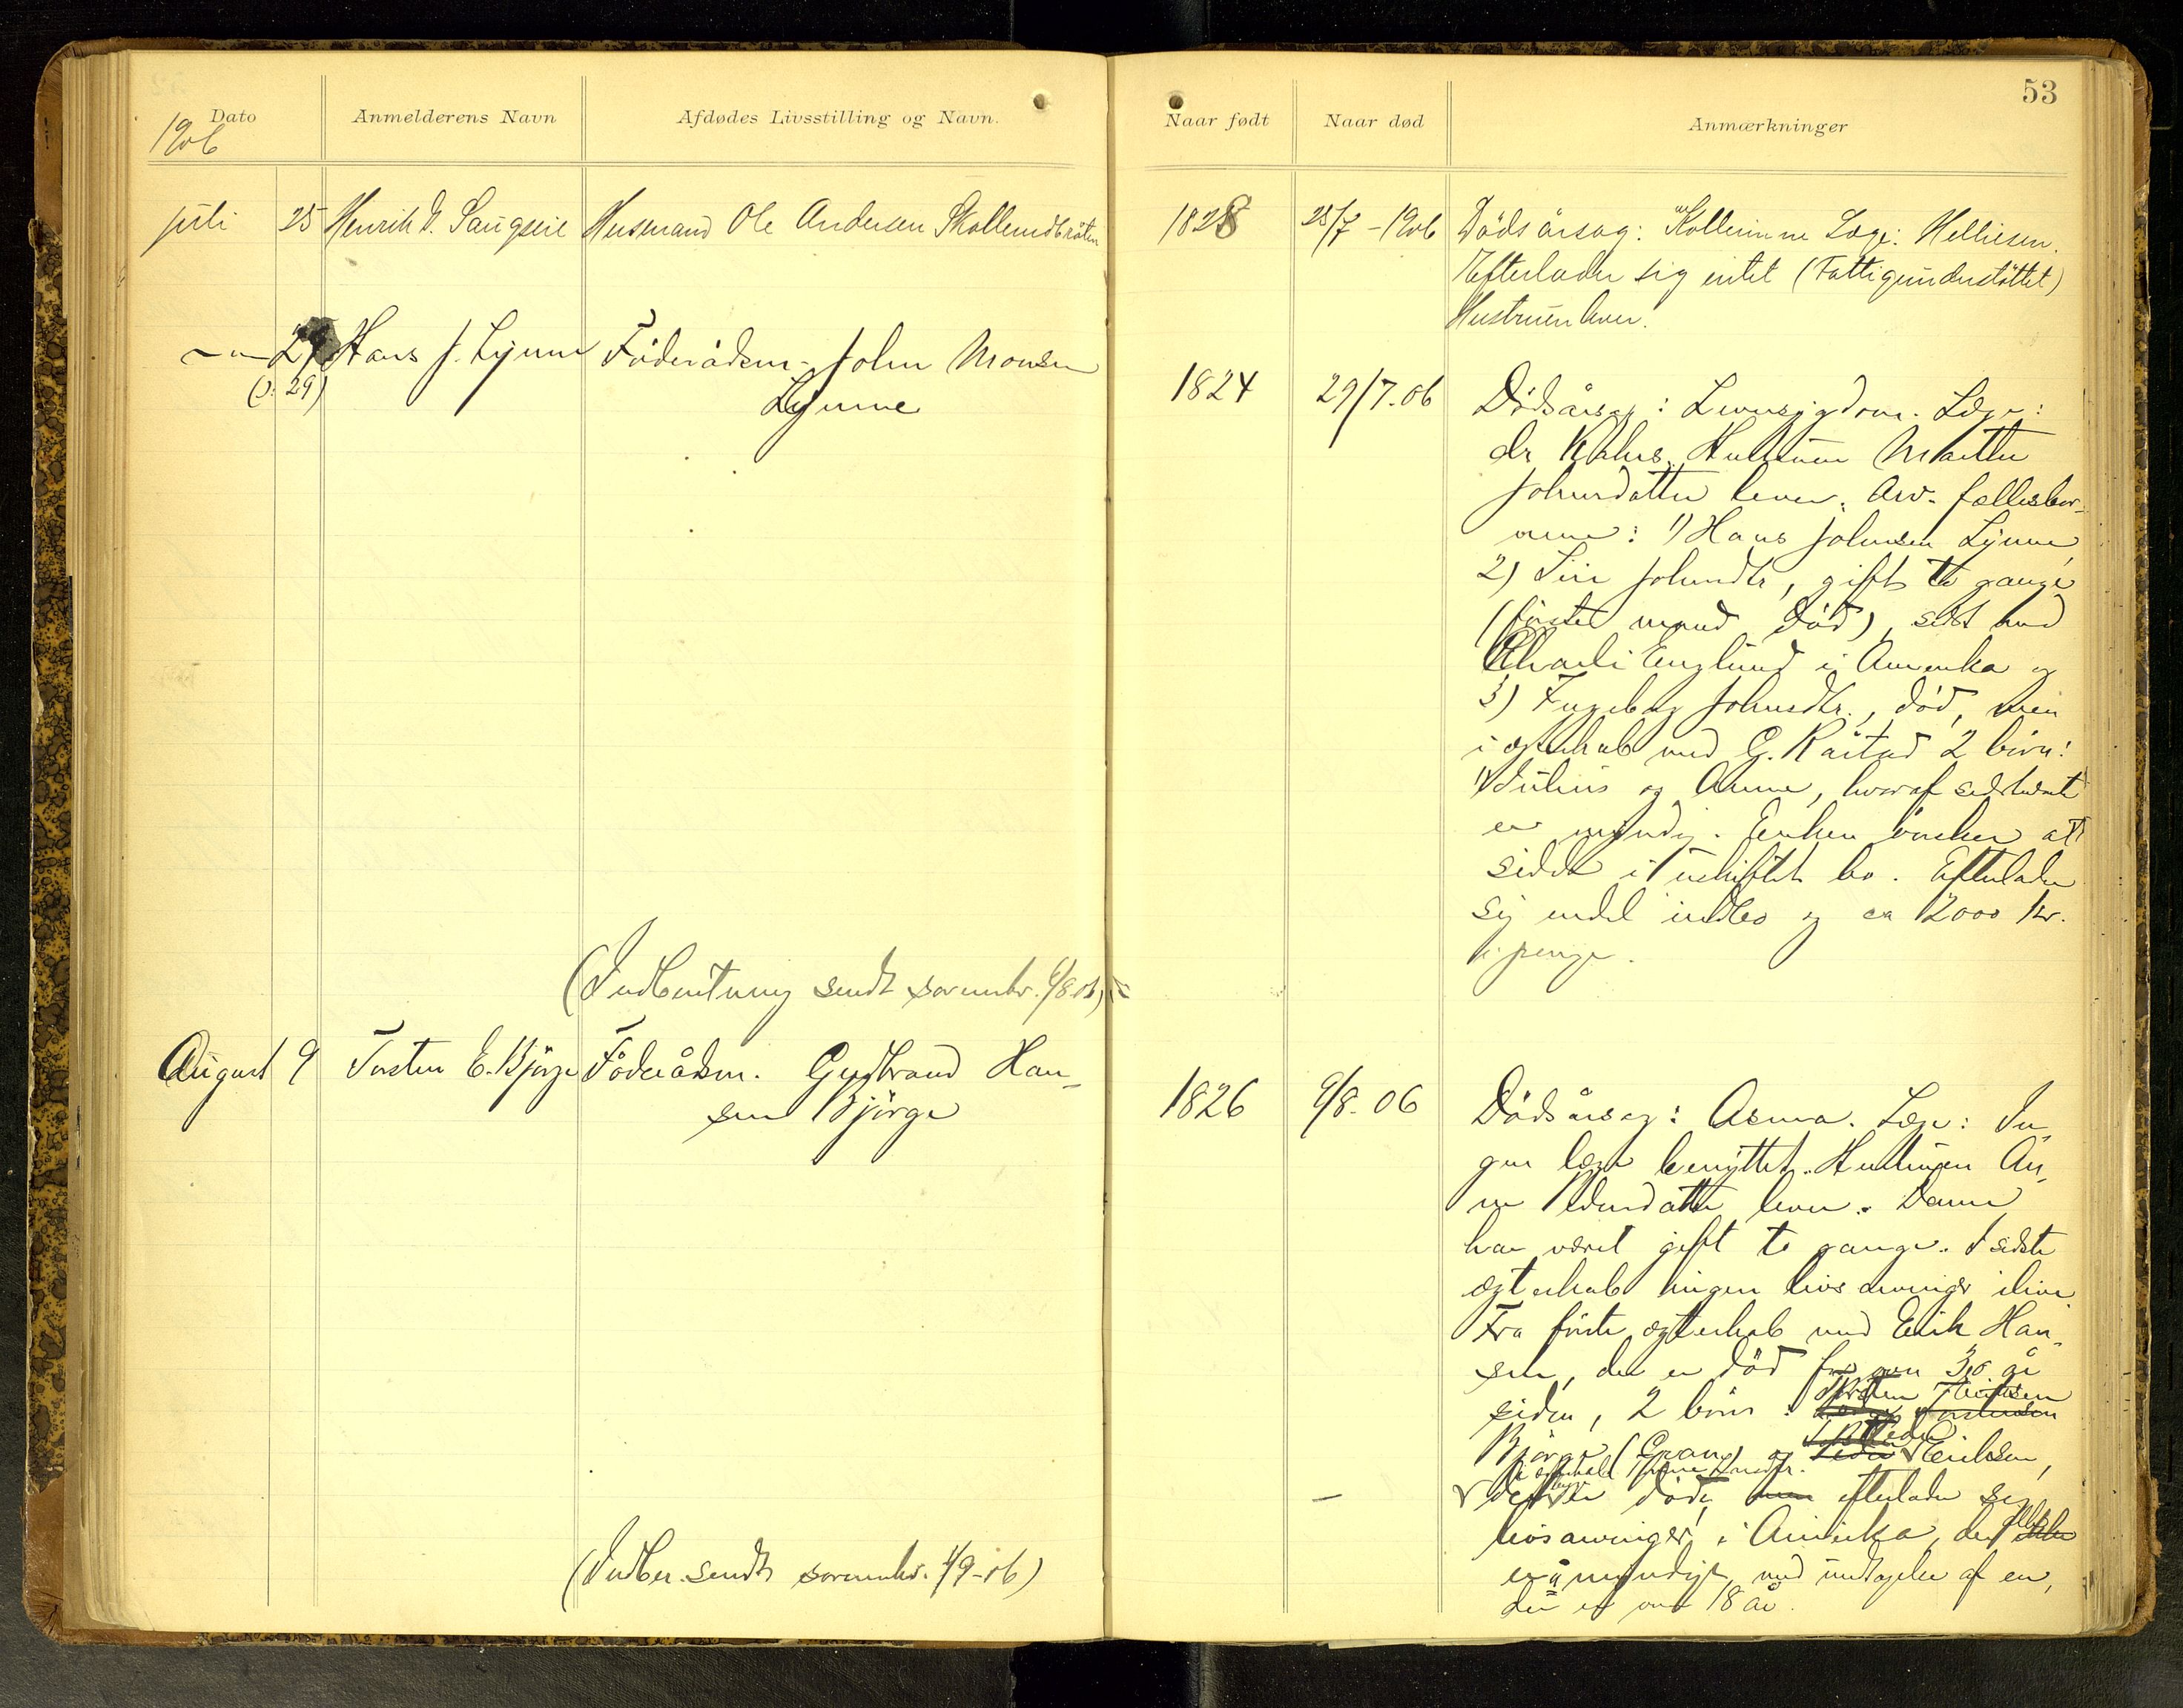 53
Dato
Anmelderens Navn
Afdødes Livsstilling og Navn.
Naar født
Naar død
Anmærkninger
1906
juli 25 Henrik Saugseie Husmand Ole Andersen Skollerudbråten 1828 25/7-1906 Dödsårsag: Kollerinne Læge: Helliesen.
Efterlader sig intet (Fattigunderstöttet)
Hustruen lever.
-"- 27 Hans J. Lynne Föderådsm. John Monsen
(ɔ: 29)
Lynne
1824 29/7.06 Dödsårsag: Leversygdom. Læge:
dr Hustruen Marthe
Johnsdatter lever. Arv. fællesbör-
nene: 1) Hans Johnsen Lynne,
2) Siri Johnsdtr, gift to gange
(förste mand död), sidst med
Charli Englund i Amerika og
3) Ingeborg Johnsdtr., död, men
i ægteskab med G. Råstad 2 börn:
Julius og Anne, hvoraf sidstnævnte
er myndig. Enken önsker at
sidde i uskiftet bo. Efterlader
sig endel indbo og ca 12000 kr.
i penge.
(Indberetning sendt sorenskr. 4/8.06)
August 9 Torsten E. Björge Föderådsm. Gudbrand Han-
sen Björge
1826 9/8-06 Dödsårsag: Asma. Læge: In-
gen læge benyttet. Hustruen An-
ne lever. Denne
har været gift to gange. I sidste
ægteskab ingen livsarvinger ilive.
Fra förste ægteskab med Erik Han-
sen, der er död for over 30 år
siden, 2 börn: Torsten
Björge (Gran) og Eriksen,
döde, efterlader sig
livsarvinger i Amerika, der
er myndige med undtagelse af en,
der er over 18 år.
(Indber. sendt sorenskr. 1/9-06)